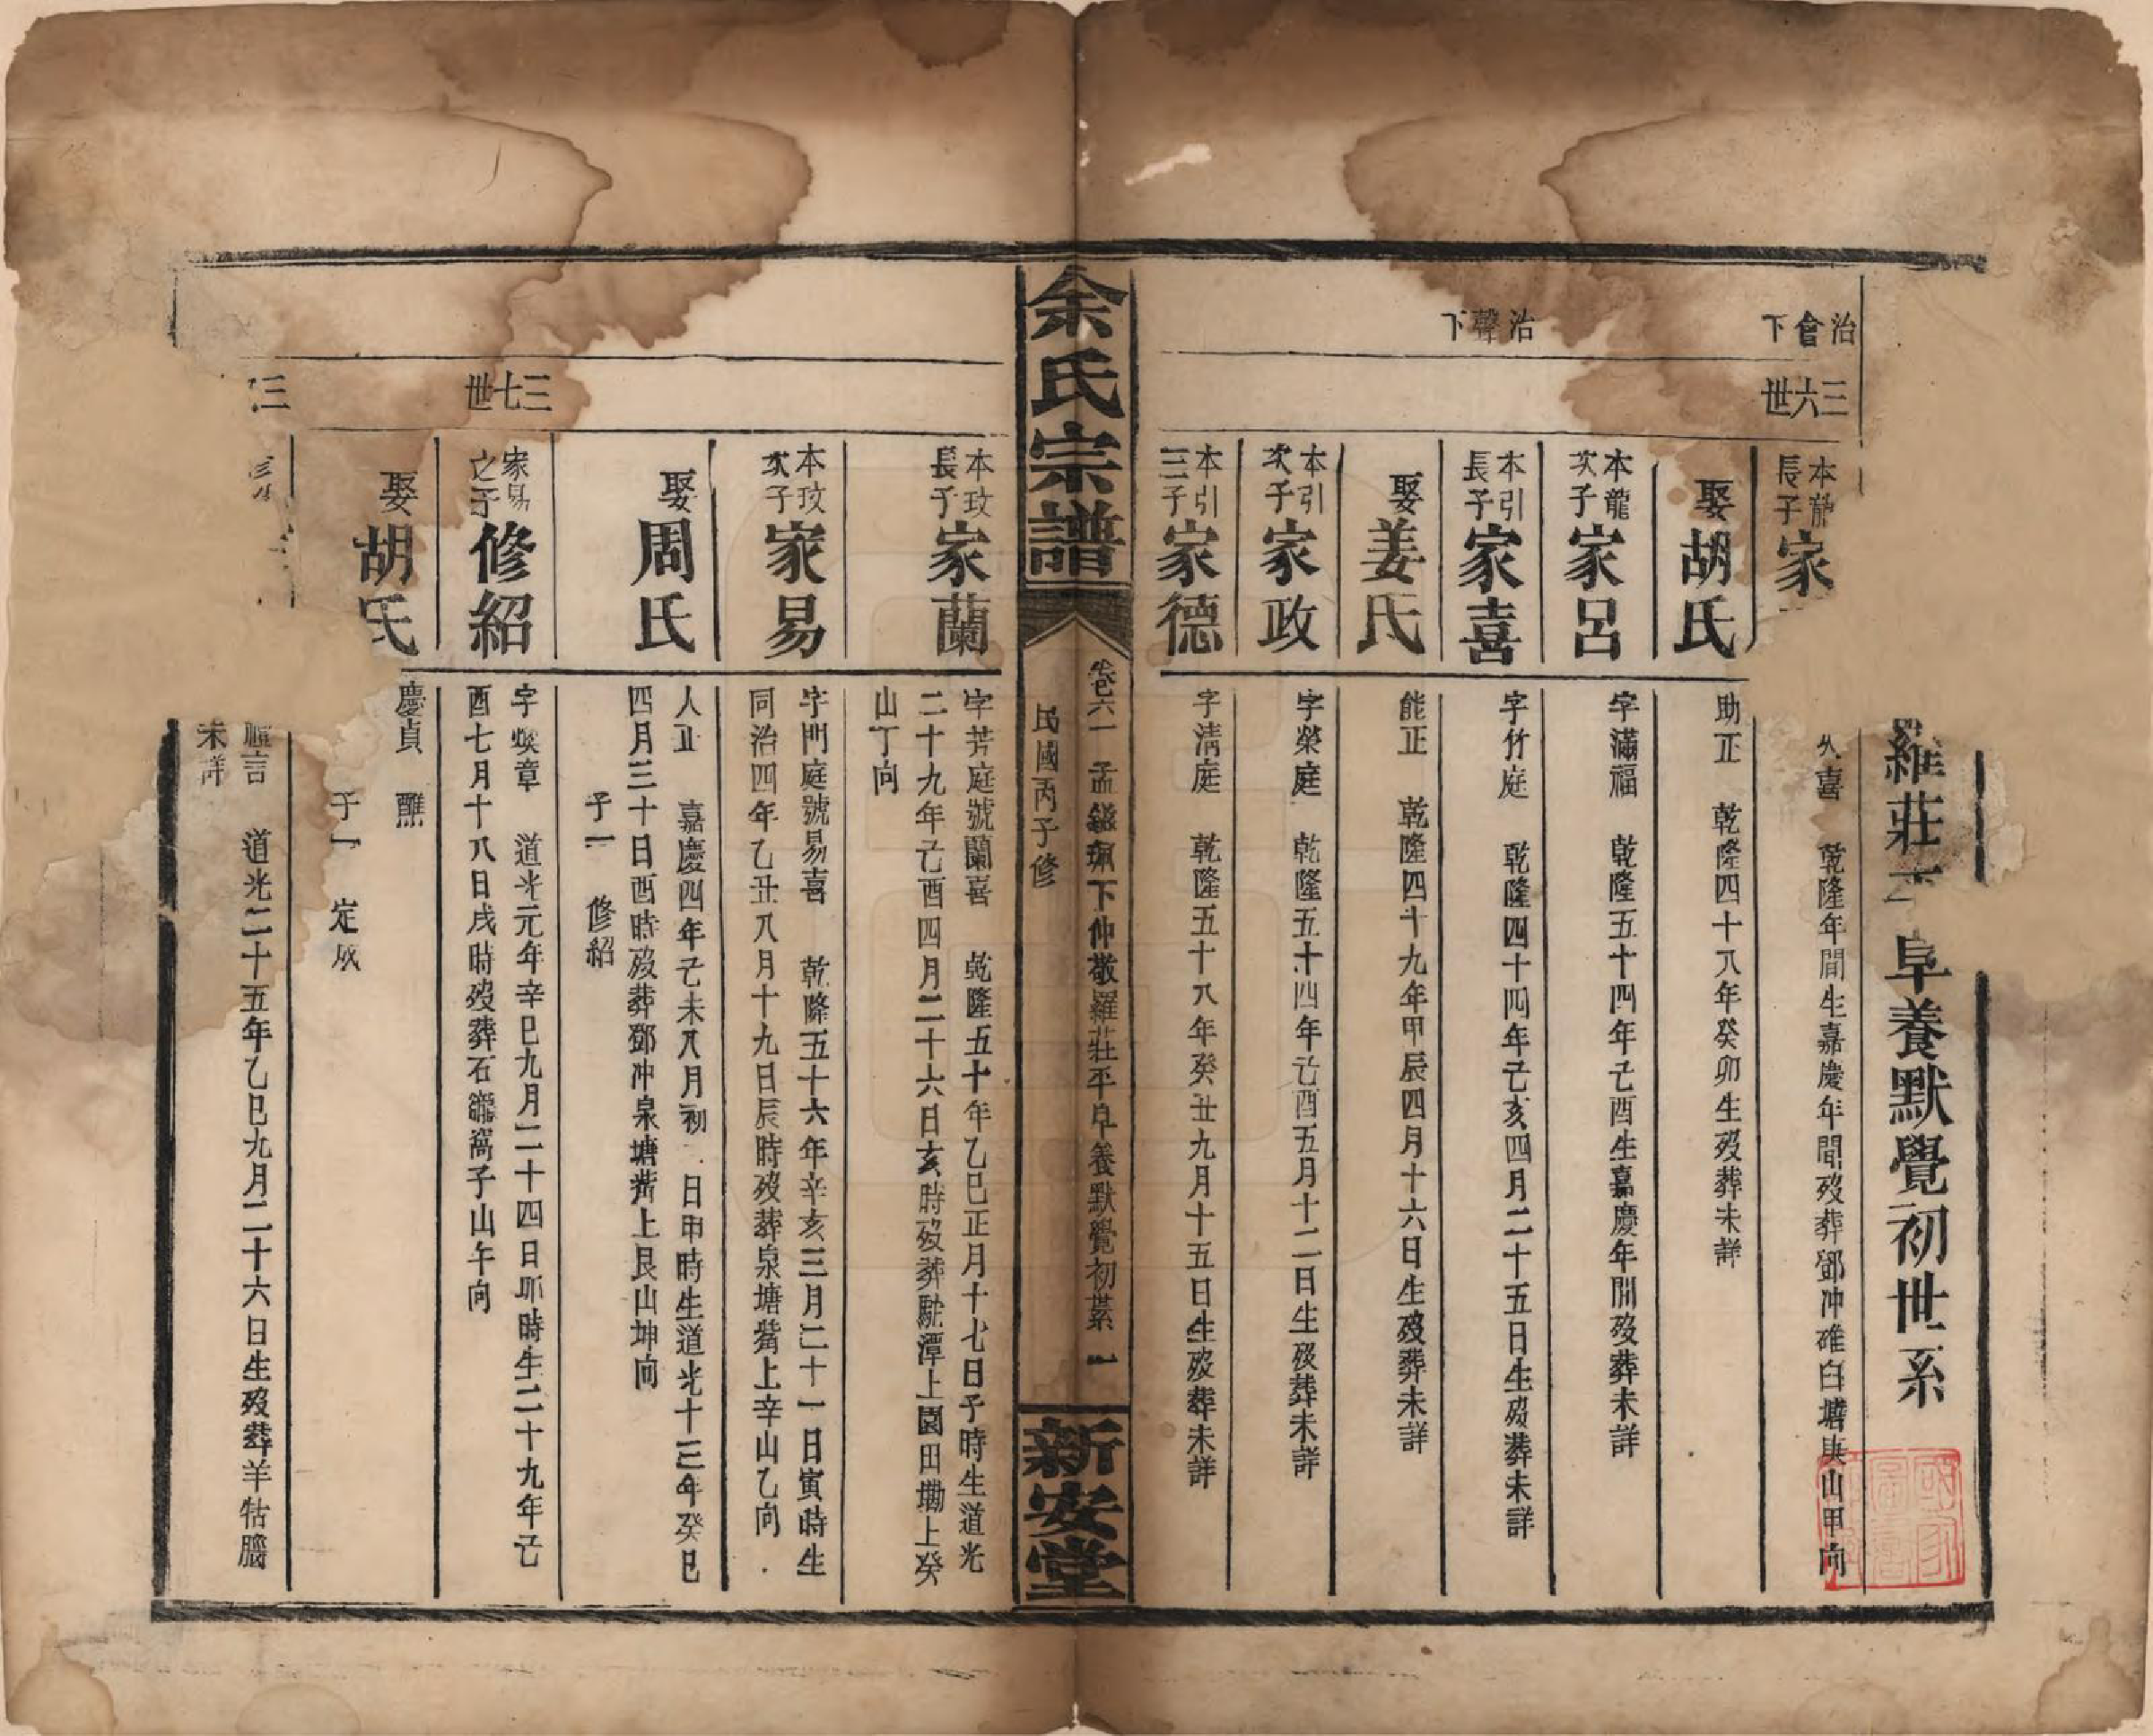 羅莊
阜養默覺初世系
治會下
三六世
本龍長子
家
喜 乾隆年間生嘉慶年間歿葬鄧冲碓臼塘庚山甲向
娶胡氏
助正 乾隆四十八年癸卯生歿葬未詳
本龍次子
家呂
字滿福 乾隆五十四年己酉生嘉慶年間歿葬未詳
治聲下
本引長子
家喜
字竹庭 乾隆四十四年己亥四月二十五日生歿葬未詳
娶姜氏
能正 乾隆四十九年甲辰四月十六日生歿葬未詳
本引次子
家政
字榮庭 乾隆五十四年己酉五月十二日生歿葬未詳
本引三子
家德
字淸庭 乾隆五十八年癸丑九月十五日生歿葬未詳
余氏宗譜
卷六一 孟鎡珮下仲敬羅莊平阜養默覺初系 一
民國丙子修
新安堂
本玟長子
家蘭
字芳庭號蘭喜 乾隆五十年乙巳正月十七日子時生道光
二十九年己酉四月二十六日亥時歿葬駝潭上園田塝上癸
山丁向
本玟次子
家易
字門庭號易喜 乾隆五十六年辛亥三月二十一日寅時生
同治四年乙丑八月十九日辰時歿葬泉塘嘴上辛山乙向
娶周氏
人正 嘉慶四年己未八月初 日申時生道光十三年癸巳
四月三十日酉時歿葬鄧冲泉塘嘴上艮山坤向
子一 修紹
三七世
家易之子
修紹
字煥章 道光元年辛巳九月二十四日卯時生二十九年己
酉七月十八日戌時歿葬石龍窩子山午向
娶胡氏
慶貞 醮
子一 定成
三
言 道光二十五年乙巳九月二十六日生歿葬羊牯腦
未詳